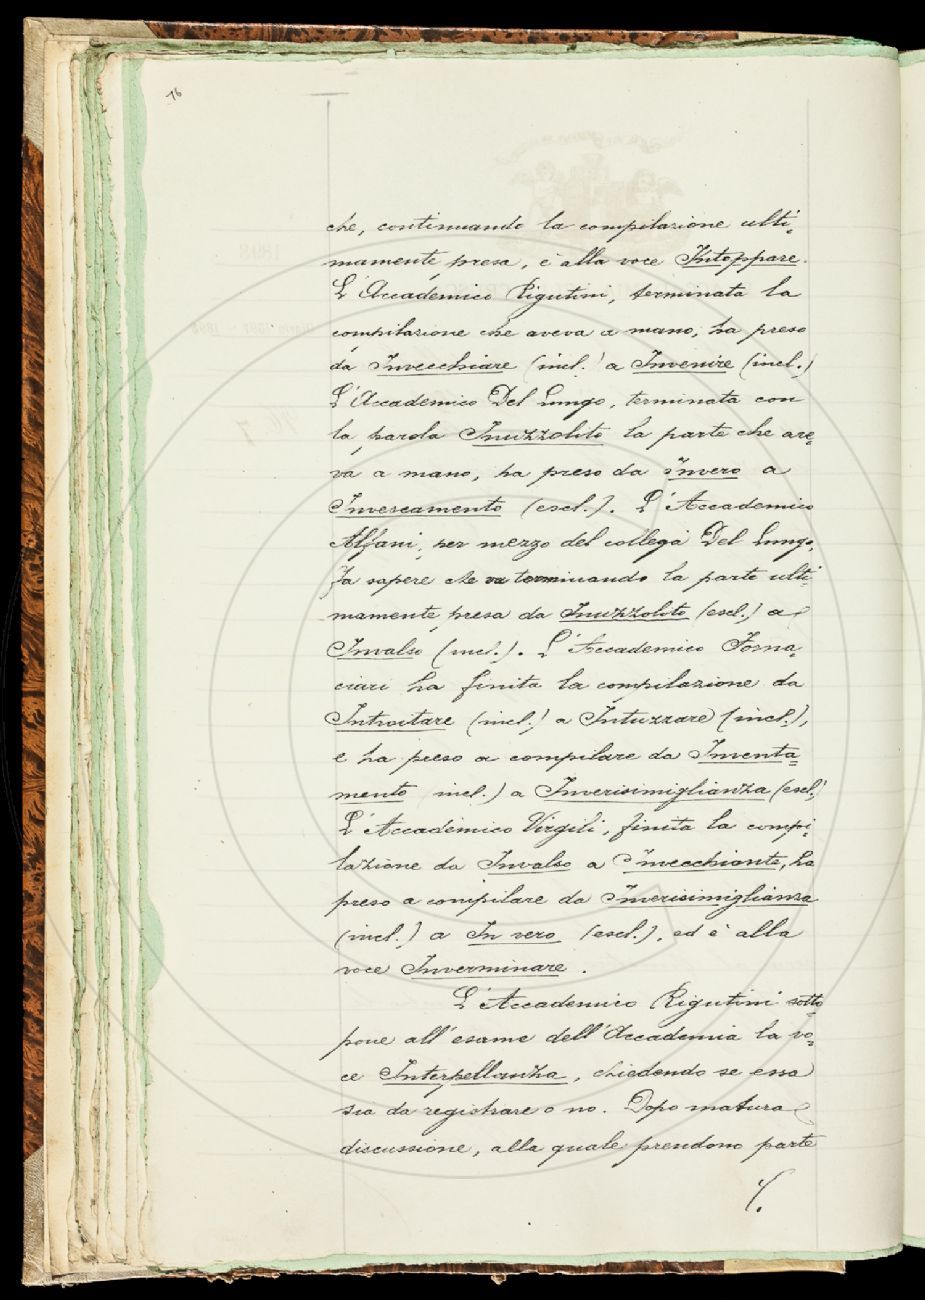 76
che, continuando la compilazione ulti=
mamente presa, è alla voce Inteppare.
L'Accademico Rigutini, terminata la
compilazione che aveva a mano, ha preso
da Invecchiare (incl.) a Invenire (incl.)
L'Accademico Del Lungo, terminata con
la parola Inuzzolito la parte che ave=
va a mano, ha preso da Invero a
Invescamento (escl.). L'Accademico
Alfani, per mezzo del collega Del Lungo,
fa sapere che va terminando la parte ulti=
mamente presa da Inuzzolito (escl.) a
Invalso (incl.). L'Accademico Forna=
ciari ha finita la compilazione da
Introitare (incl.) a Intuzzare (incl.),
e ha preso a compilare da Inventa=
mento incl.) a Inverisimiglianza (escl.)
L'Accademico Virgili, finita la compi=
lazione da Invalso a Invecchiante, ha
preso a compilare da Inverisimiglianza
(incl.) a In vero (escl.), ed è alla
voce Inverminare.
L'Accademico Rigutini sotto=
pone all'esame dell'Accademia la vo=
ce Interpellanza, chiedendo se essa
sia da registrare o no. Dopo matura
discussione, alla quale prendono parte